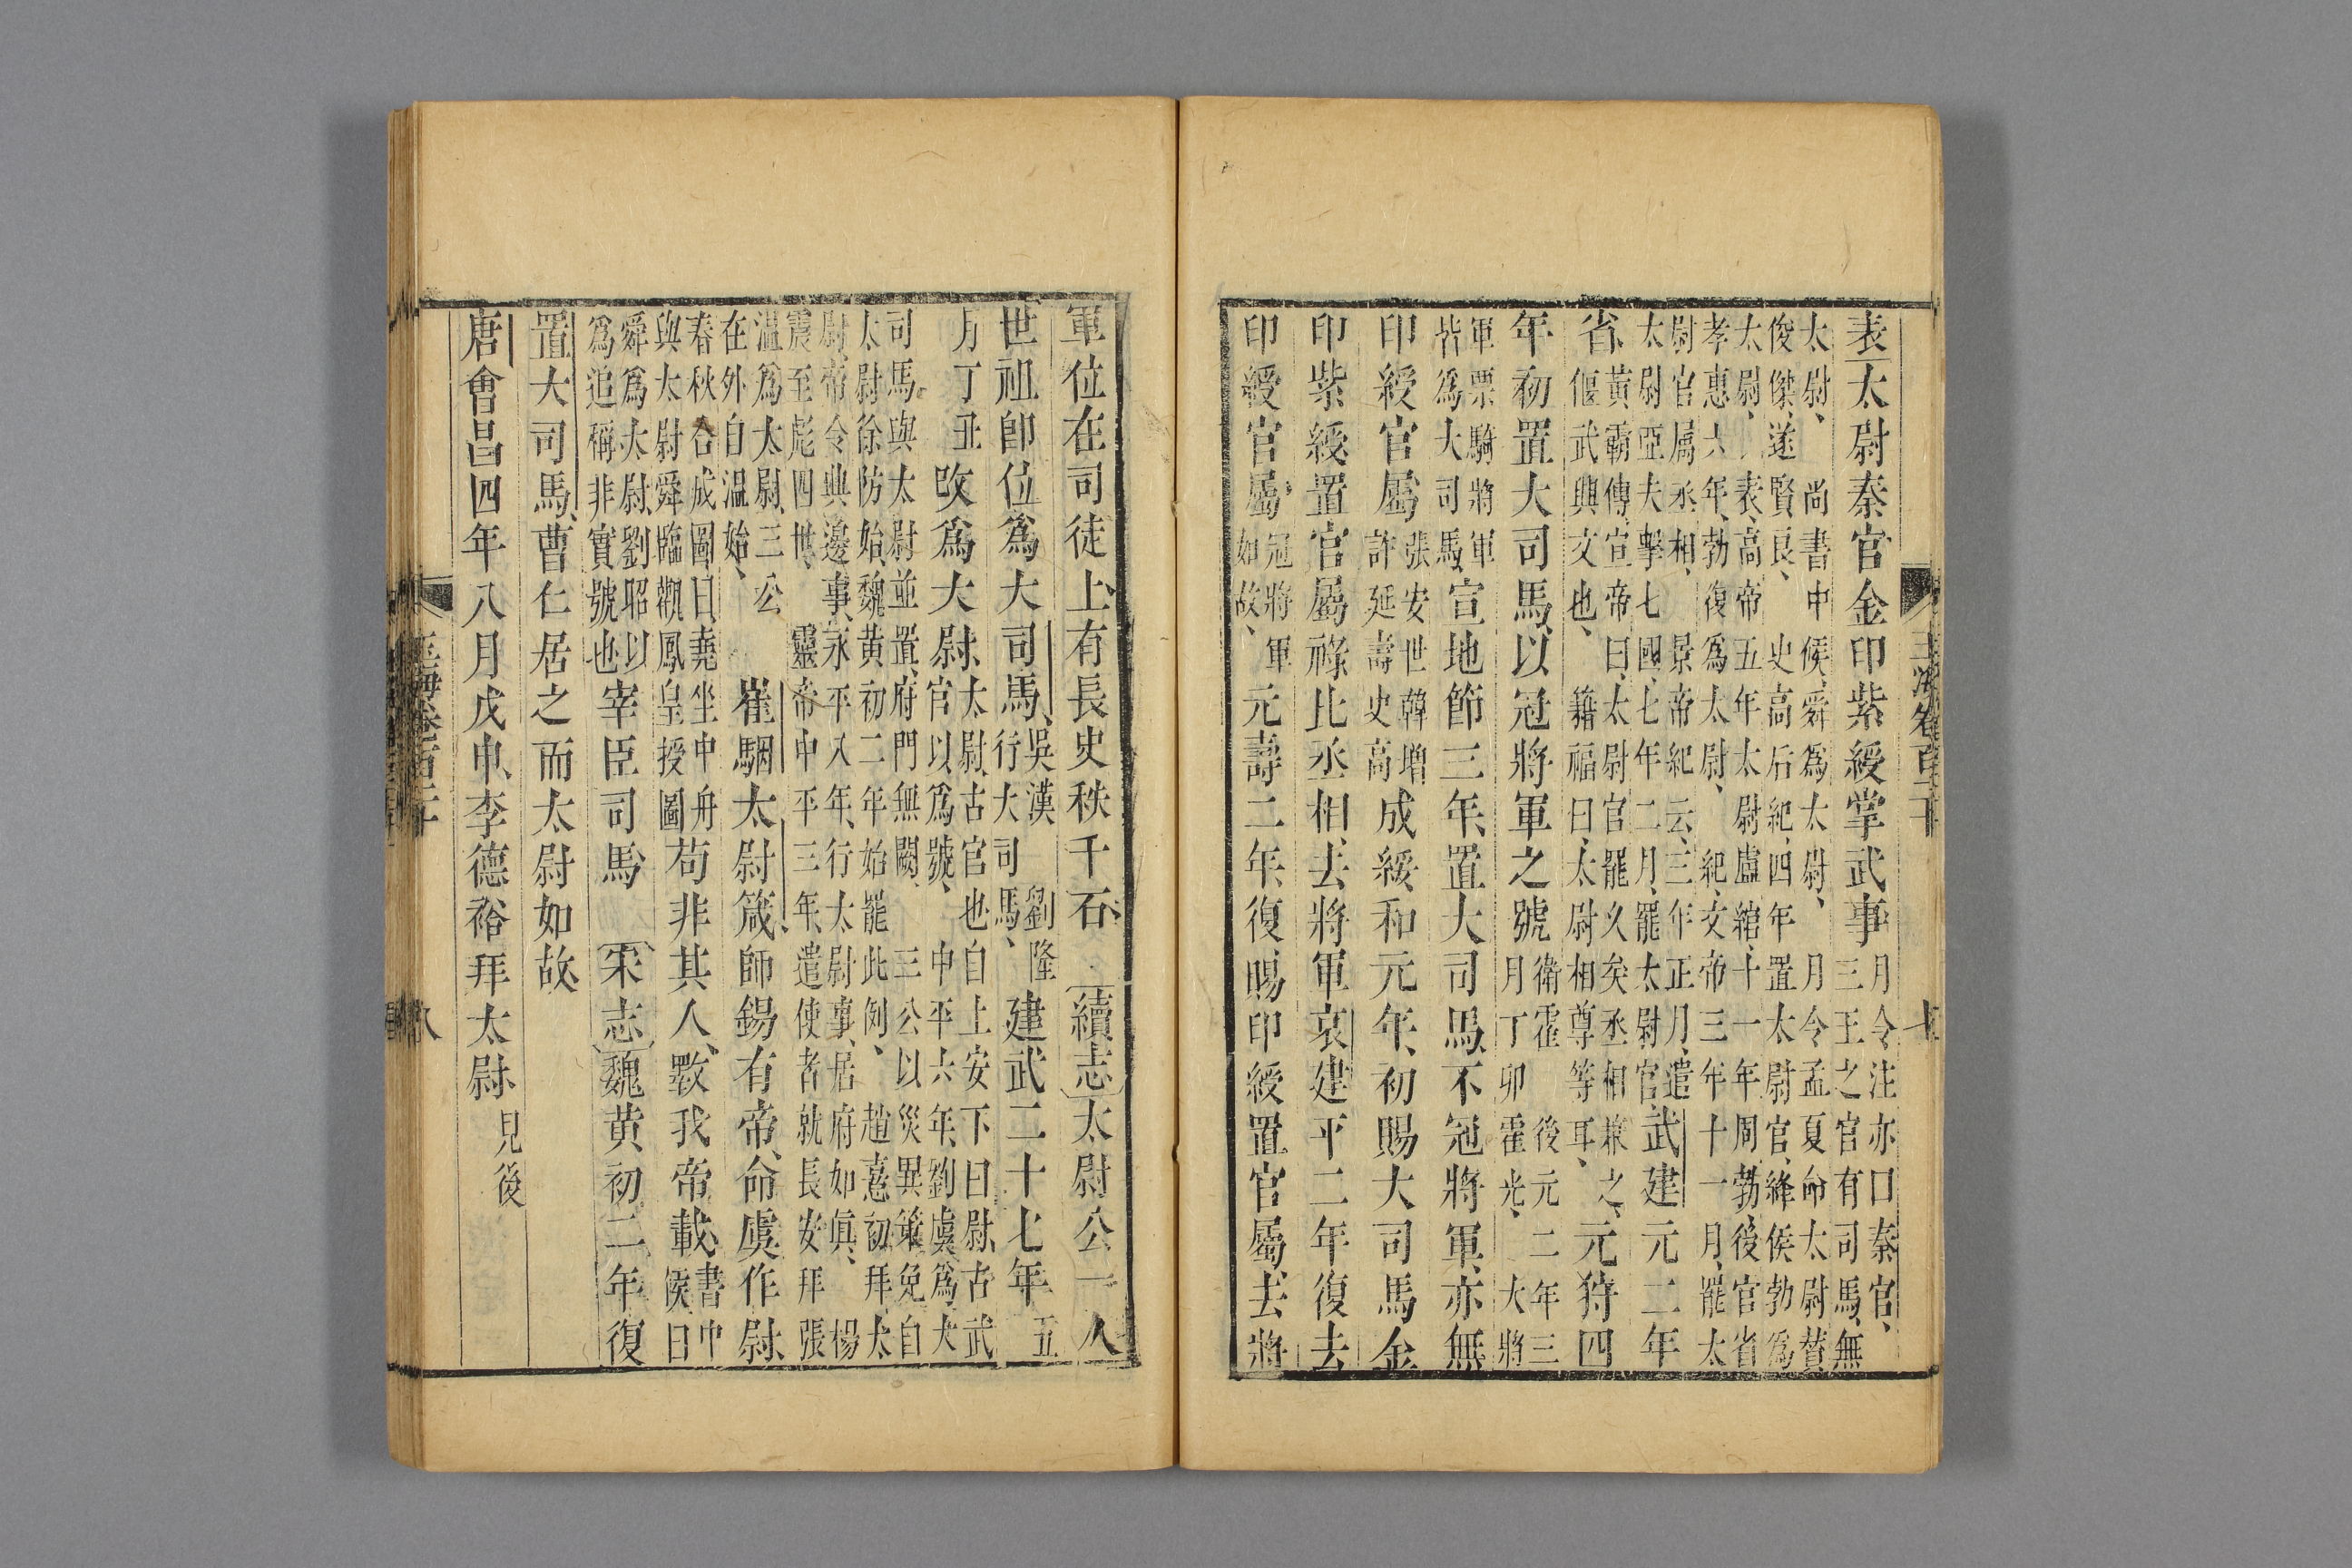 玉海卷百二十 七
表太尉秦官金印紫綬掌武事
月令注亦曰秦官、
三王之官有司馬、無
太尉、尚書中候、舜爲太尉、月令孟夏命太尉贊
俊傑、遂賢良、史高后紀、四年置太尉官、絳侯勃爲
太尉、表、高帝五年太尉盧綰、十一年周勃、後官省
孝惠六年、勃復爲太尉、紀、文帝三年十一月、罷太
尉官屬丞相、景帝紀云、三年正月、遣
太尉亞夫擊七國、七年二月、罷太尉官、
武建元二年
省、
黃霸傳、宣帝曰、太尉官罷久矣丞相兼之、
偃武興文也、籍福曰、太尉相尊等耳、
元狩四
年初置大司馬、以冠將軍之號
衛霍 後元二年三
月丁卯霍光、大將
軍票騎將軍
皆爲大司馬、
宣地節三年、置大司馬、不冠將軍、亦無
印綬官屬
張安世韓增
許延壽史高
成綏和元年、初賜大司馬金
印紫綬置官屬祿比丞相、去將軍哀建平二年復去
印綬官屬、
冠將軍
如故、
元壽二年、復賜印綬置官屬、去將
軍位在司徒上、有長史秩千石、續志太尉公一人
世祖卽位爲大司馬、
吳漢 劉隆
行大司馬、
建武二十七年
五
月丁丑
改爲大尉、
太尉、古官也自上安下曰尉、古武
官以爲號、中平六年、劉虞爲、大
司馬與太尉並置、府門無闕、三公以災異策免自
太尉徐防始、魏黃初二年始罷此例、趙憙初拜太
尉、帝令典邊事、永平八年、行太尉事、居府如眞、楊
震至彪四世、靈帝中平三年、遣使者就長安拜張
溫爲太尉、三公
在外自溫始、
崔駰太尉箴、師錫有帝、命虞作尉、
春秋合成圖曰、堯坐中舟
與太尉舜臨觀鳳皇授圖
苟非其人、斁我帝載、
書中
候曰
舜爲太尉、劉昭以
爲追稱非實號也
宰臣司馬 宋志魏黃初二年復
置大司馬、曹仁居之而太尉如故、
唐會昌四年八月戊申、李德裕拜太尉、
見後
玉海卷百二十 八